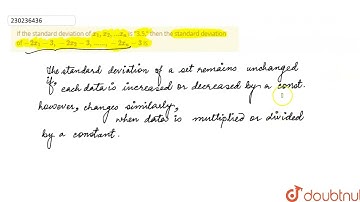 230236436
If the standard deviation of x₁, x₂, ...xₙ is "3.5." then the standard deviation
of −2x₁ − 3, −2x₂ − 3, ......, −2xₙ − 3 is
The standard deviation of a set remains unchanged
if, each data is increased or decreased by a const.
however, changes similarly,
when data is multiplied or divided
by a constant.
doubtnut